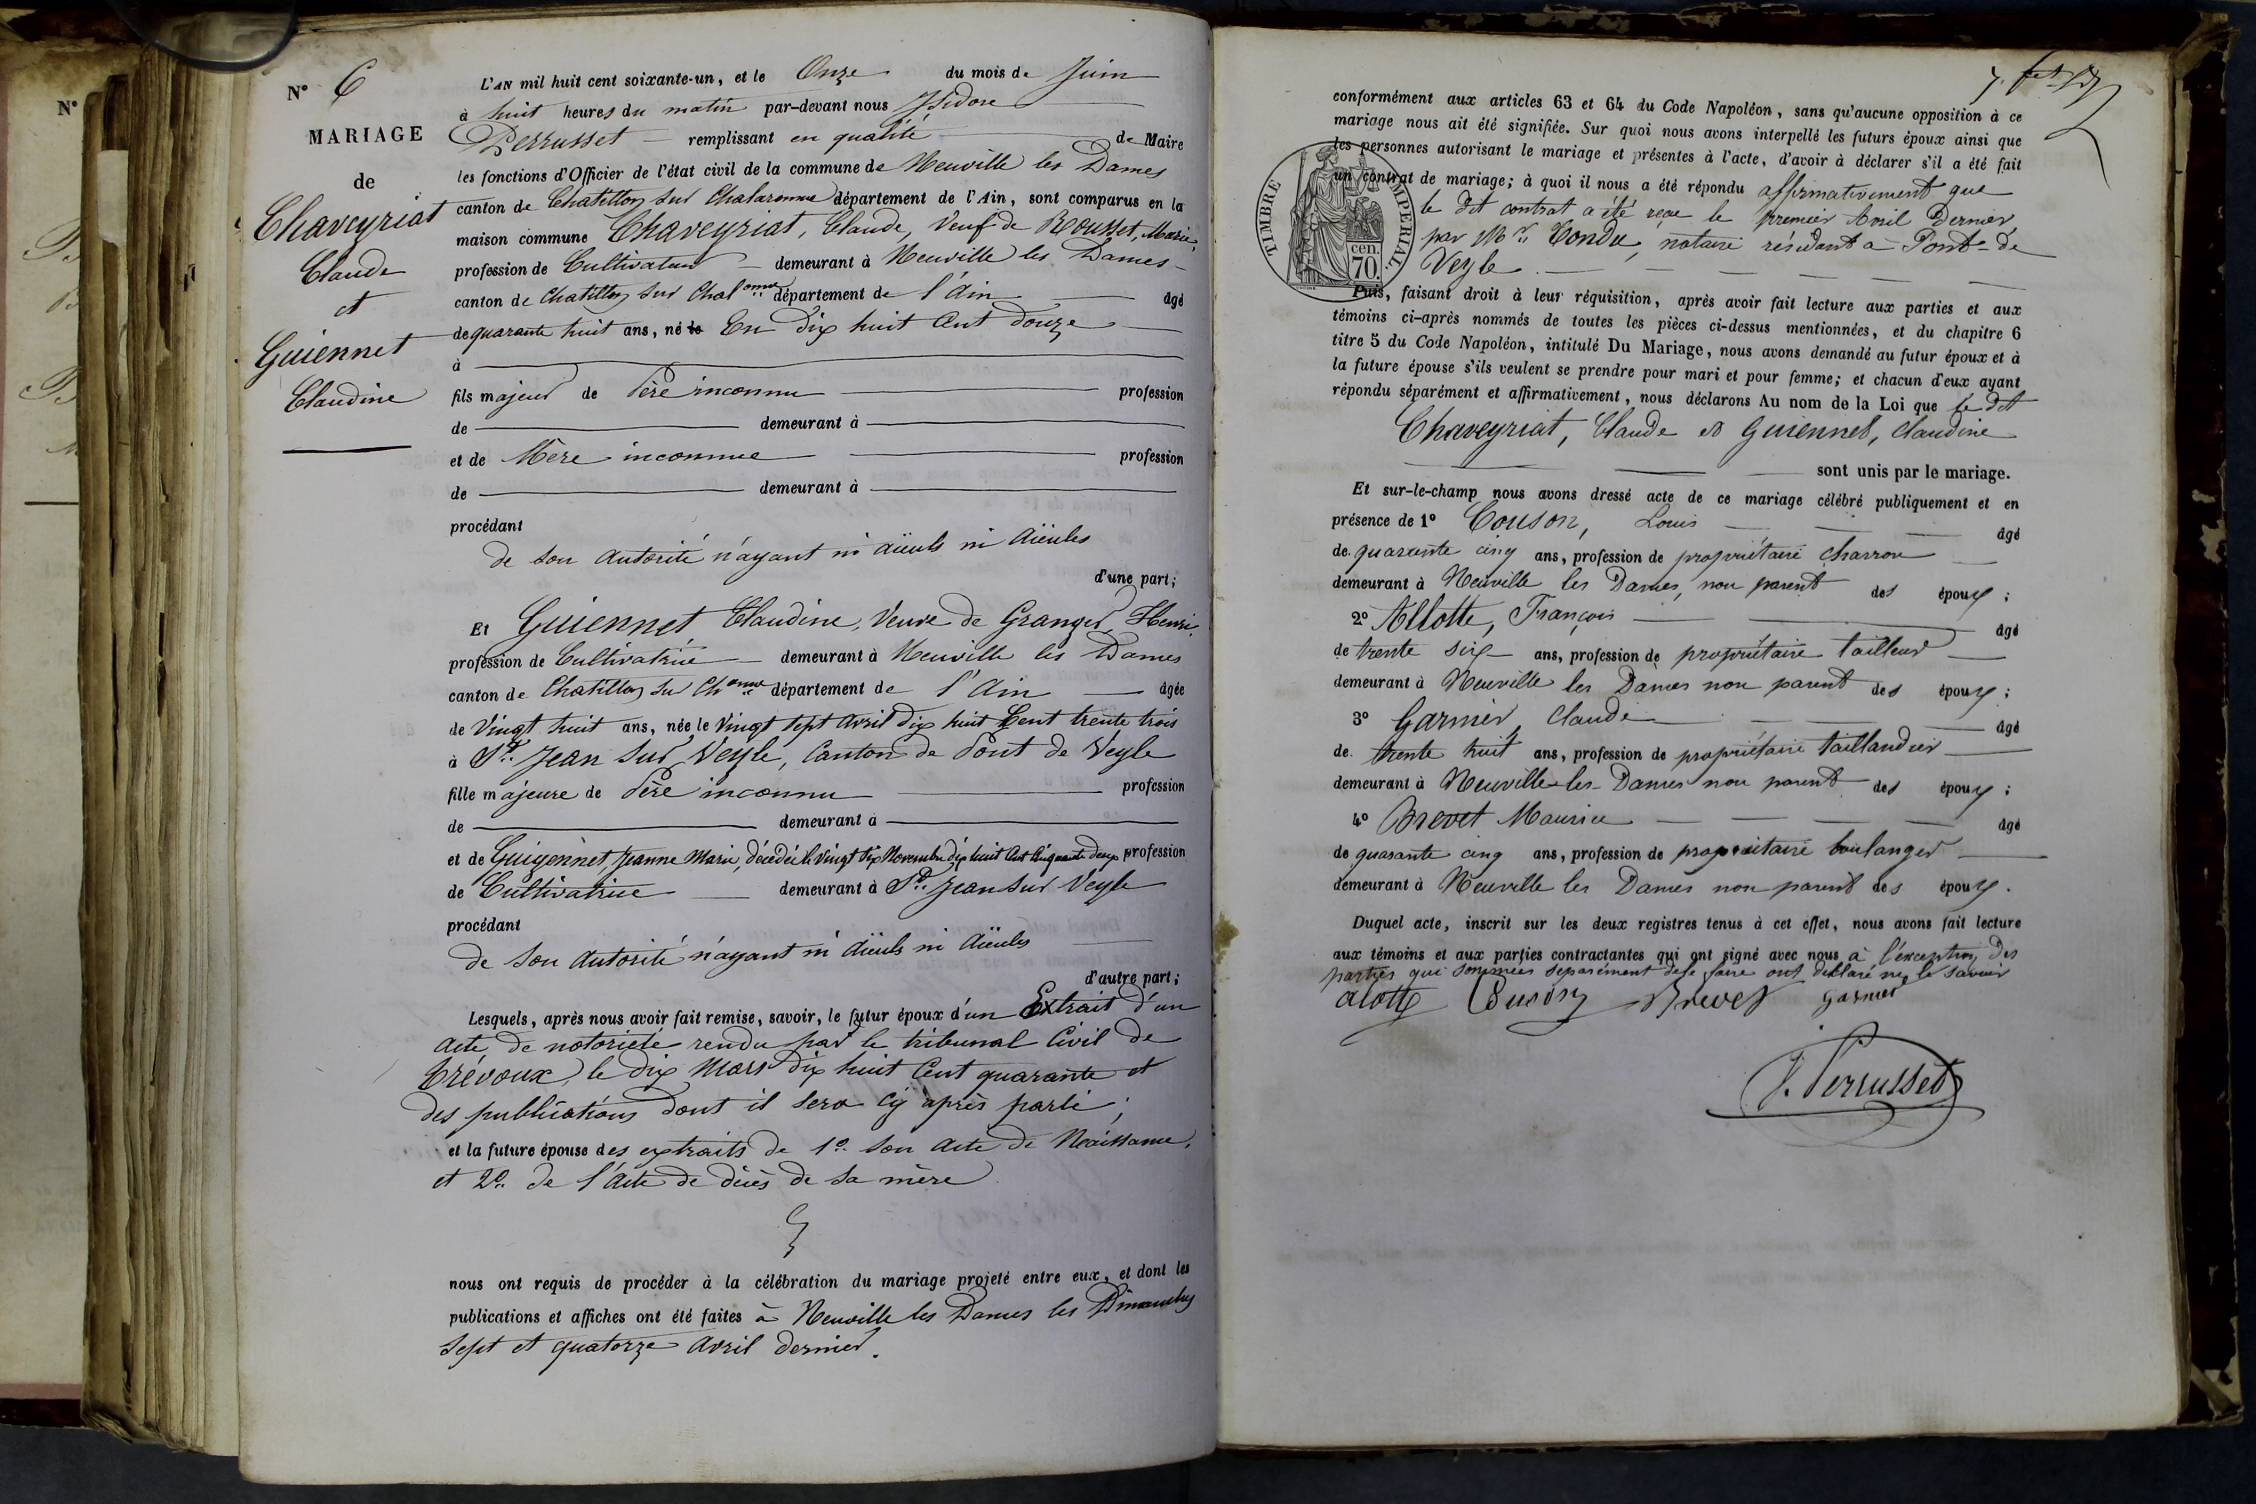 N°
N° 6
MARIAGE
de
Chaveyriat
Claude
et
Guiennet
Claudine
L'AN mil huit cent soixante-un, et le Onze du mois de Juin
à huit heures du matin par-devant nous Isidore
Perrusset remplissant en qualité de Maire
les fonctions d'Officier de l'état civil de la commune de Neuville les Dames
canton de Chatillon sur Chalaronne département de l'Ain, sont comparus en la
maison commune Chaveyriat, Claude, Veuf de Rousset, Marie,
profession de Cultivateur demeurant à Neuville les Dames
canton de Chatillon sur Chalonne département de l'Ain âgé
de quarante huit ans, né le En dix huit Cent douze
à
fils majeur de Père inconnu profession
de demeurant à
et de Mère inconnue profession
de demeurant à
procédant
de son autorité n'ayant ni aïeuls ni aïeules
d'une part;
Et Guiennet Claudine, Veuve de Granger Henri,
profession de Cultivatrice demeurant à Neuville les Dames
canton de Chatillon sur Chonne département de l'Ain âgée
de Vingt huit ans, née le Vingt sept avril dix huit Cent trente trois
à St. Jean sur Veyle, Canton de Pont de Veyle
fille majeure de Père inconnu profession
de demeurant à
et de Guigennet, Jeanne Marie, décédée le vingt six Novembre dix huit Cent Cinquante deux profession
de Cultivatrice demeurant à St. Jean sur Veyle
procédant
de son autorité n'ayant ni aïeuls ni aïeules
d'autre part;
Lesquels, après nous avoir fait remise, savoir, le futur époux d'un Extrait d'un
acte de notoriété rendu par le tribunal Civil de
Trévoux, le dix Mars dix huit Cent quarante et
des publications dont il sera cy après parlé;
et la future épouse des extraits de 1° son acte de Naissance,
et 2° de l'acte de décès de sa mère
nous ont requis de procéder à la célébration du mariage projeté entre eux, et dont les
publications et affiches ont été faites à Neuville les Dames les Dimanches
sept et quatorze avril dernier.
conformément aux articles 63 et 64 du Code Napoléon, sans qu'aucune opposition à ce
mariage nous ait été signifiée. Sur quoi nous avons interpellé les futurs époux ainsi que
les personnes autorisant le mariage et présentes à l'acte, d'avoir à déclarer s'il a été fait
un contrat de mariage; à quoi il nous a été répondu affirmativement que
le dit contrat a été reçu le premier avril Dernier,
par Me. Tondu, notaire résidant à Pont-de
Veyle
TIMBRE IMPERIAL
cen.
70.
Puis, faisant droit à leur réquisition, après avoir fait lecture aux parties et aux
témoins ci-après nommés de toutes les pièces ci-dessus mentionnées, et du chapitre 6
titre 5 du Code Napoléon, intitulé Du Mariage, nous avons demandé au futur époux et à
la future épouse s'ils veulent se prendre pour mari et pour femme; et chacun d'eux ayant
répondu séparément et affirmativement, nous déclarons Au nom de la Loi que le dit
Chaveyriat, Claude et Guiennet, Claudine
sont unis par le mariage.
Et sur-le-champ nous avons dressé acte de ce mariage célébré publiquement et en
présence de 1° Couson, Louis âgé
de quarante cinq ans, profession de propriétaire charron
demeurant à Neuville les Dames, non parent des époux;
2° Allotte, François âgé
de trente six ans, profession de propriétaire tailleur
demeurant à Neuville les Dames non parent des époux;
3° Garnier, Claude âgé
de trente huit ans, profession de propriétaire taillandier
demeurant à Neuville les Dames non parent des époux;
4° Brevet Maurice âgé
de quarante cinq ans, profession de propriétaire boulanger
demeurant à Neuville les Dames non parent des époux.
Duquel acte, inscrit sur les deux registres tenus à cet effet, nous avons fait lecture
aux témoins et aux parties contractantes qui ont signé avec nous à l'exception des
parties qui sommées séparément de le faire ont déclaré ne le savoir
alotte Couson Brevet garnier
J. Perrusset